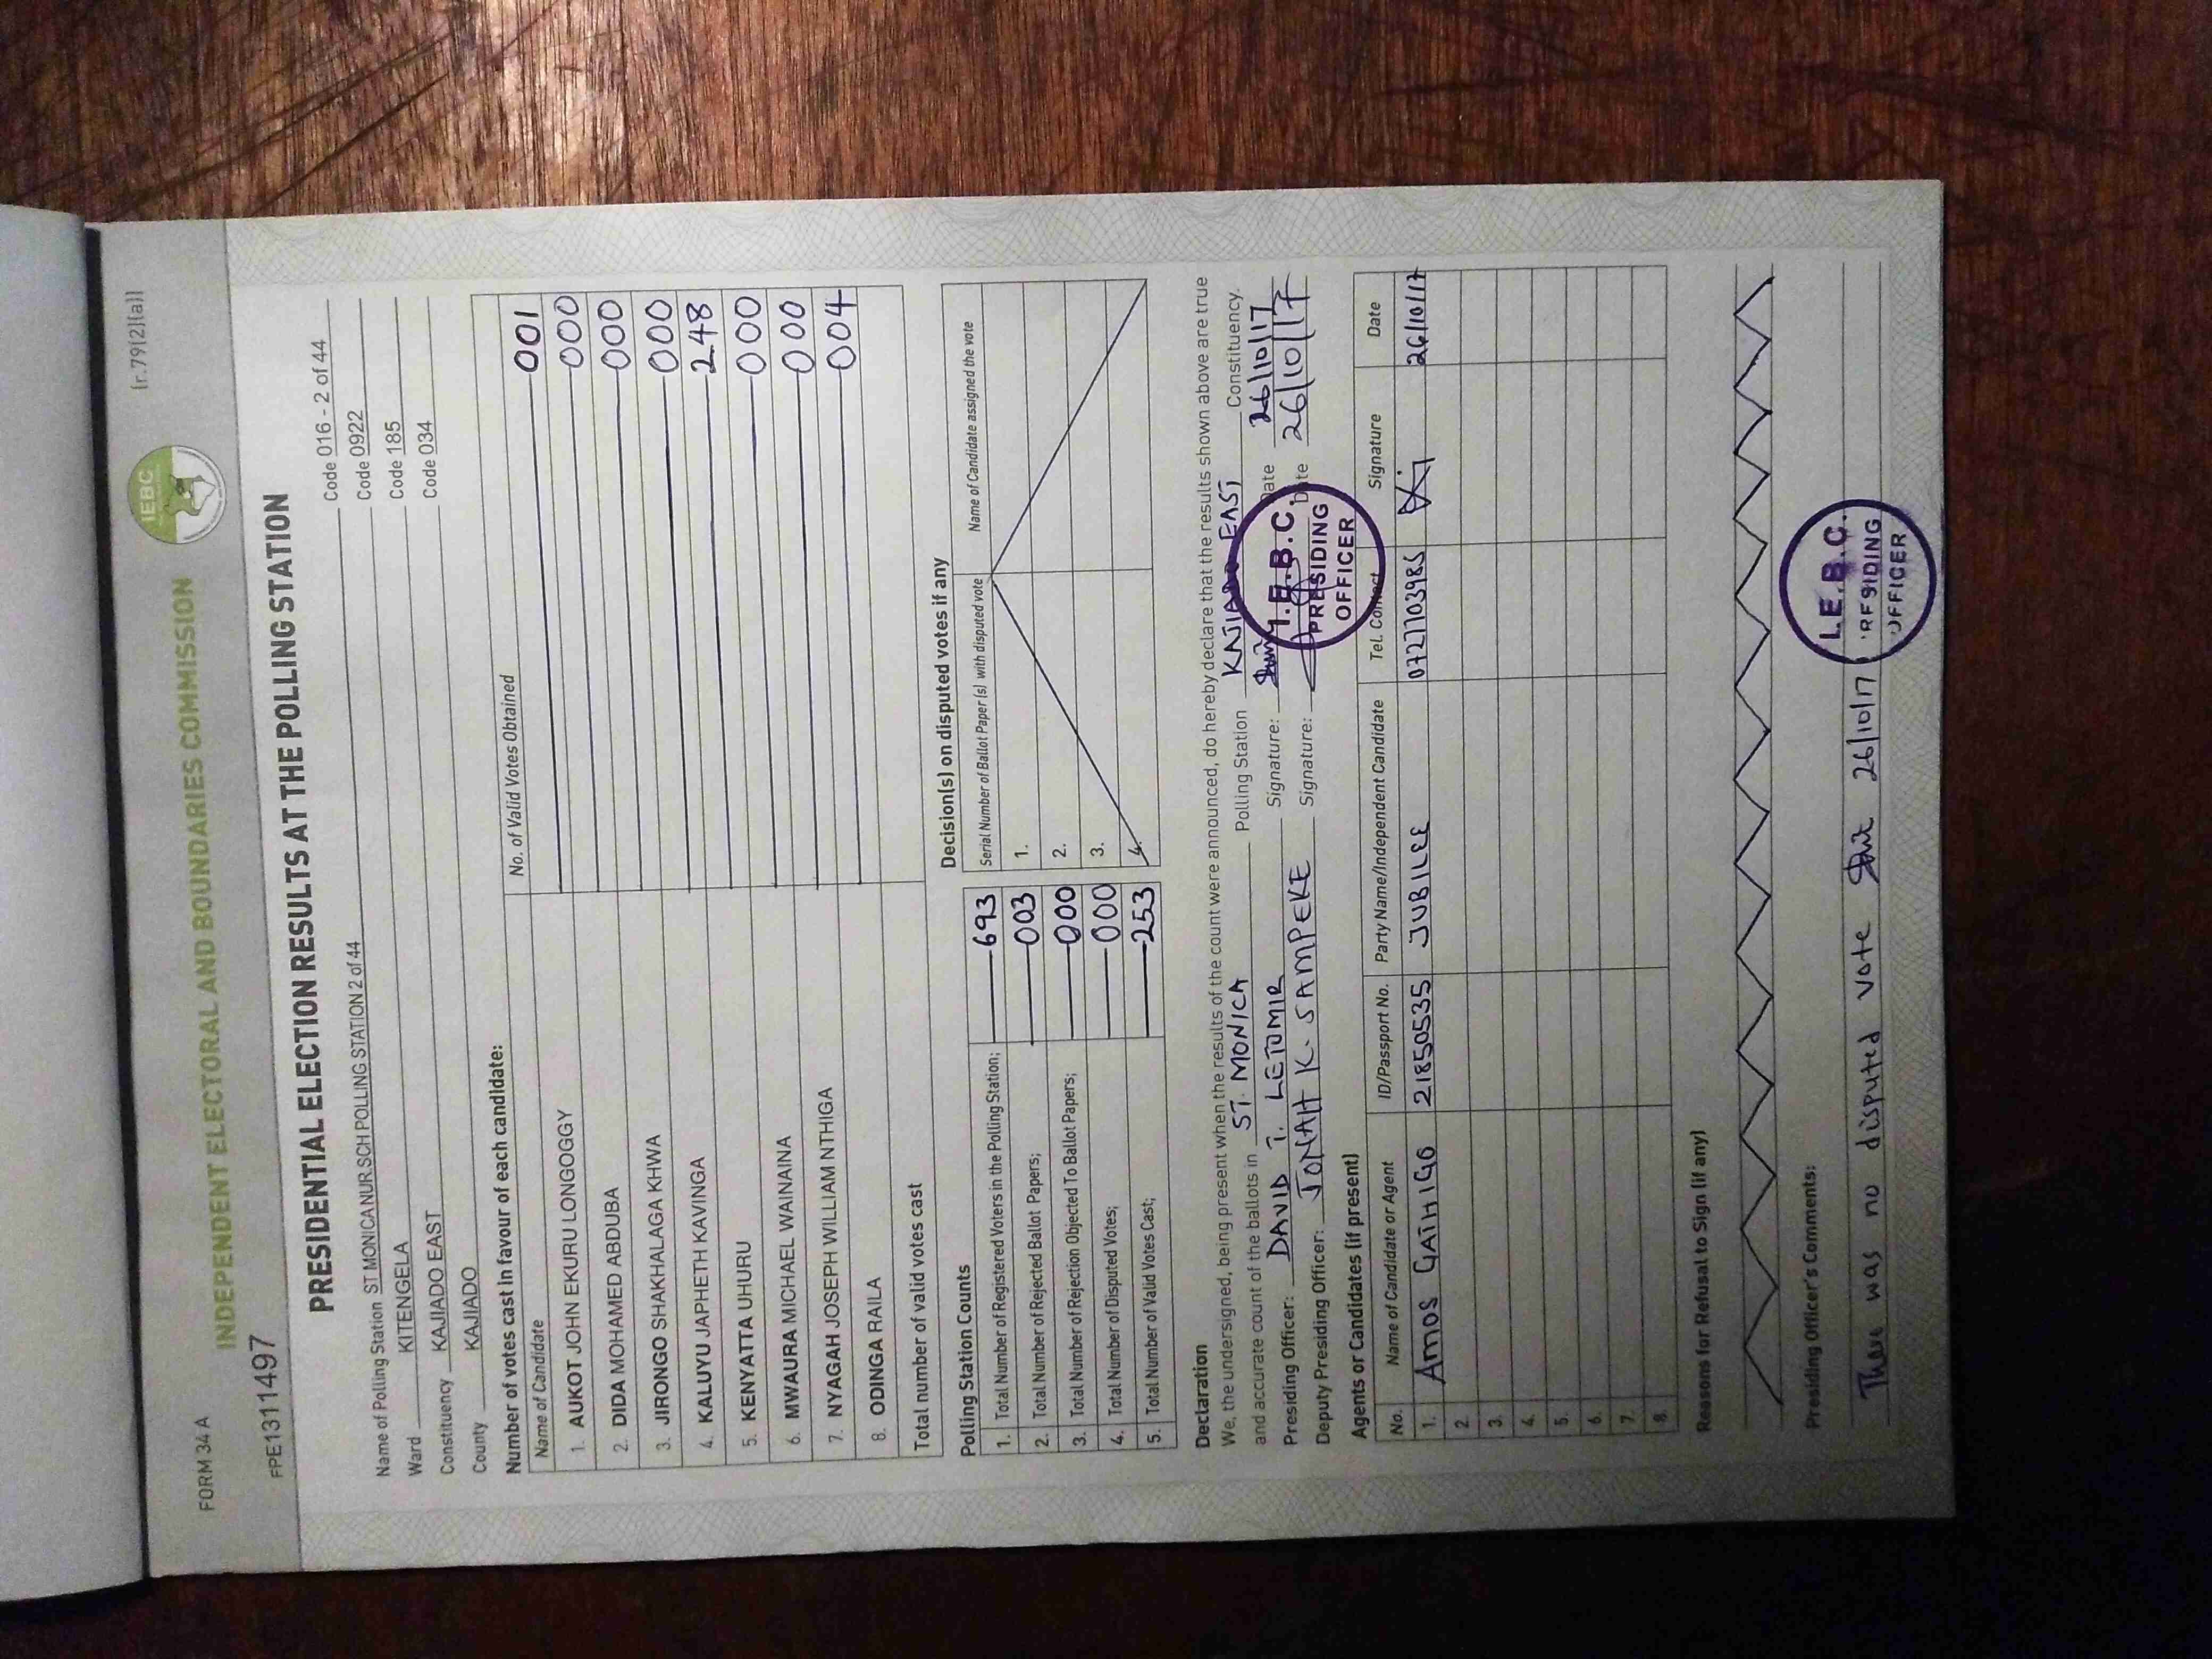 FORM 34 A
(r.79(2)(a))
IEBC
INDEPENDENT ELECTORAL AND BOUNDARIES COMMISSION
FPE1311497
PRESIDENTIAL ELECTION RESULTS AT THE POLLING STATION
Name of Polling Station ST MONICA NUR.SCH POLLING STATION 2 of 44 Code 016 - 2 of 44
Ward KITENGELA Code 0922
Constituency KAJIADO EAST Code 185
County KAJIADO Code 034
Number of votes cast in favour of each candidate:
Name of Candidate No. of Valid Votes Obtained
1. AUKOT JOHN EKURU LONGOGGY 001
2. DIDA MOHAMED ABDUBA 000
3. JIRONGO SHAKHALAGA KHWA 000
4. KALUYU JAPHETH KAVINGA 000
5. KENYATTA UHURU 248
6. MWAURA MICHAEL WAINAINA 000
7. NYAGAH JOSEPH WILLIAM NTHIGA 000
8. ODINGA RAILA 004
Total number of valid votes cast
Polling Station Counts
1. Total Number of Registered Voters in the Polling Station; 693
2. Total Number of Rejected Ballot Papers; 003
3. Total Number of Rejection Objected To Ballot Papers; 000
4. Total Number of Disputed Votes; 000
5. Total Number of Valid Votes Cast; 253
Decision(s) on disputed votes if any
Serial Number of Ballot Paper (s) with disputed vote Name of Candidate assigned the vote
1.
2.
3.
4.
Declaration
We, the undersigned, being present when the results of the count were announced, do hereby declare that the results shown above are true
and accurate count of the ballots in ST. MONICA Polling Station KAJIADO EAST Constituency.
Presiding Officer: DAVID T. LETOMIR Signature: Date 26/10/17
Deputy Presiding Officer: JONAH K. SAMPEKE Signature: Date 26/10/17
I.E.B.C.
PRESIDING
OFFICER
Agents or Candidates (if present)
No. Name of Candidate or Agent ID/Passport No. Party Name/Independent Candidate Tel. Contact Signature Date
1. AMOS GATHIGO 21850535 JUBILEE 0722103985 26/10/17
2.
3.
4.
5.
6.
7.
8.
Reasons for Refusal to Sign (if any)
Presiding Officer's Comments:
There was no disputed vote 26/10/17
I.E.B.C.
PRESIDING
OFFICER